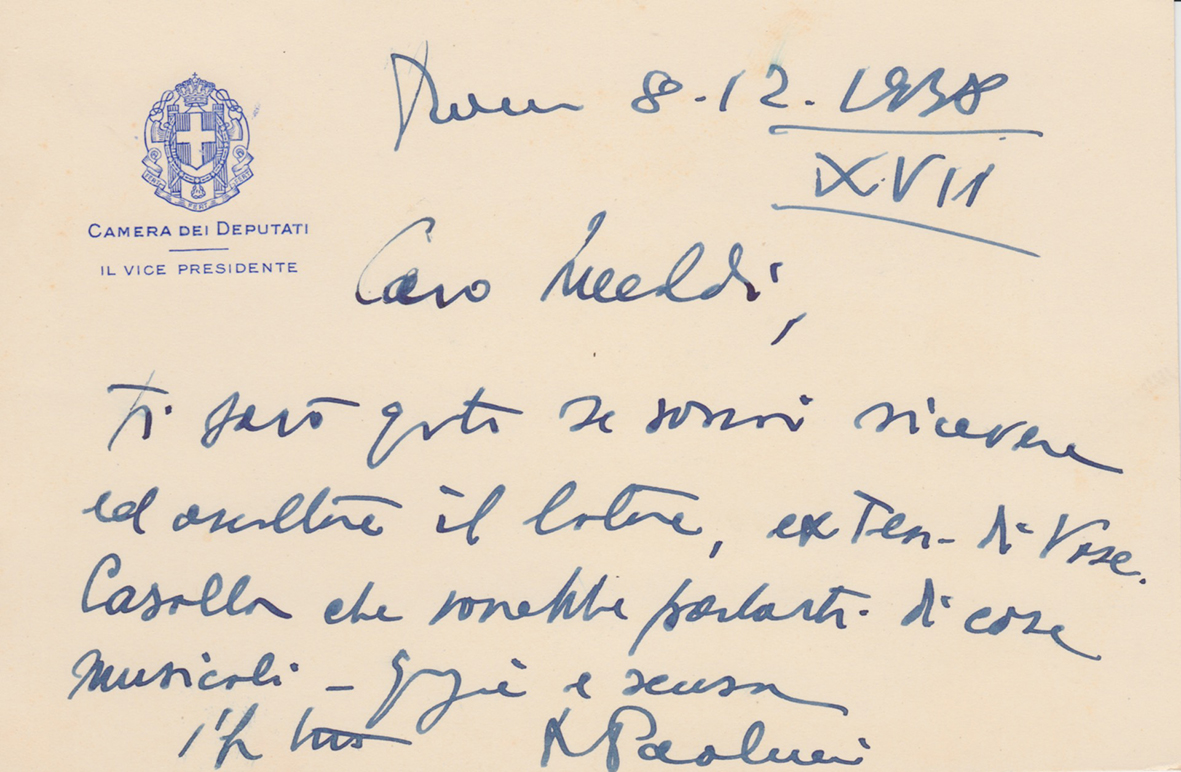 Roma 8.12.1938
XVII
CAMERA DEI DEPUTATI
IL VICE PRESIDENTE
Caro
Ti sarò grato se vorrai ricevere
ed ascoltare il latore, ex Ten. di Vasc.
Casalla che vorrebbe parlarti di cose
musicali – Grazie e scusa
R Paolucci